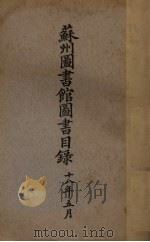 蘇州圖書館圖書目錄
十八年五月